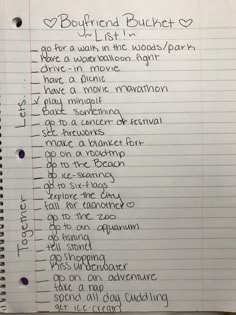 ♡ Boyfriend Bucket ♡
~ List! ~
Lets...
go for a walk in the woods/park
have a waterballoon fight
drive-in movie
have a picnic
have a movie marathon
✓ play minigolf
Bake something
go to a concert or festival
see fireworks
make a blanket fort
go on a roadtrip
go to the Beach
go ice-skating
go to six-flags
explore the city
fall for eachother♡
Together
go to the zoo
go to an aquarium
go fishing
tell stories
go shopping
kiss underwater
go on an adventure
take a nap
spend all day cuddling
get ice-cream